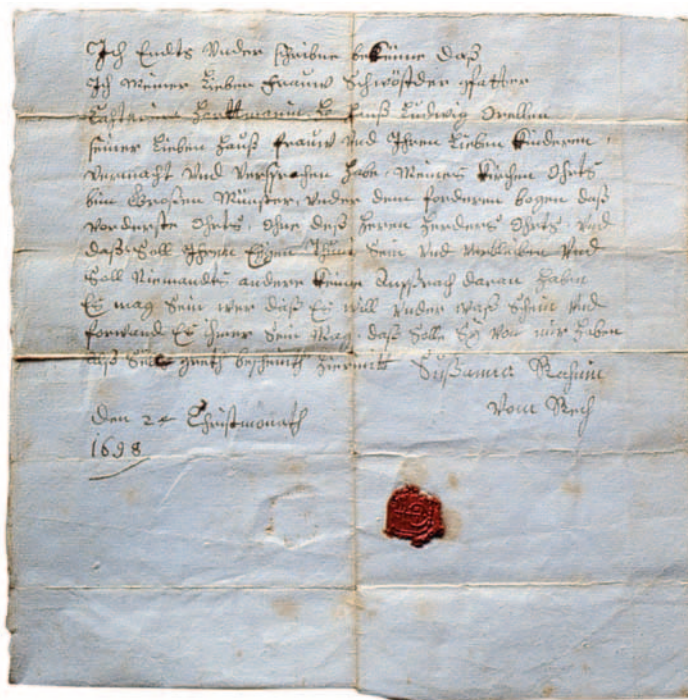 Ich Endts Under schribne bekenne daß
Ich Meiner Lieben Frauw Schwöster gfatter
Hartmanin Hanß Ludwig Orellen
seiner Lieben Hauß frauw Und Ihren Lieben kinderen
vermacht Und versprochen habe Meines kirchen Ohrts
bim Großen Münster, under dem forderen bogen daß
vorderste Ohrts, Ohne deß Heren Herders Ohrts, Und
daß Soll Ihren Eigen Thum Sein Und verbleiben Und
Soll Niemandts andere keine Ansprach daran haben
Es mag Sein wer daß Es will under waß Schin Und
forwand Es Imer Sein Mag daß Solle Sy von mir haben
bescheint hiermitt Sußanna
Vom
Den 24 Christmonath
1698